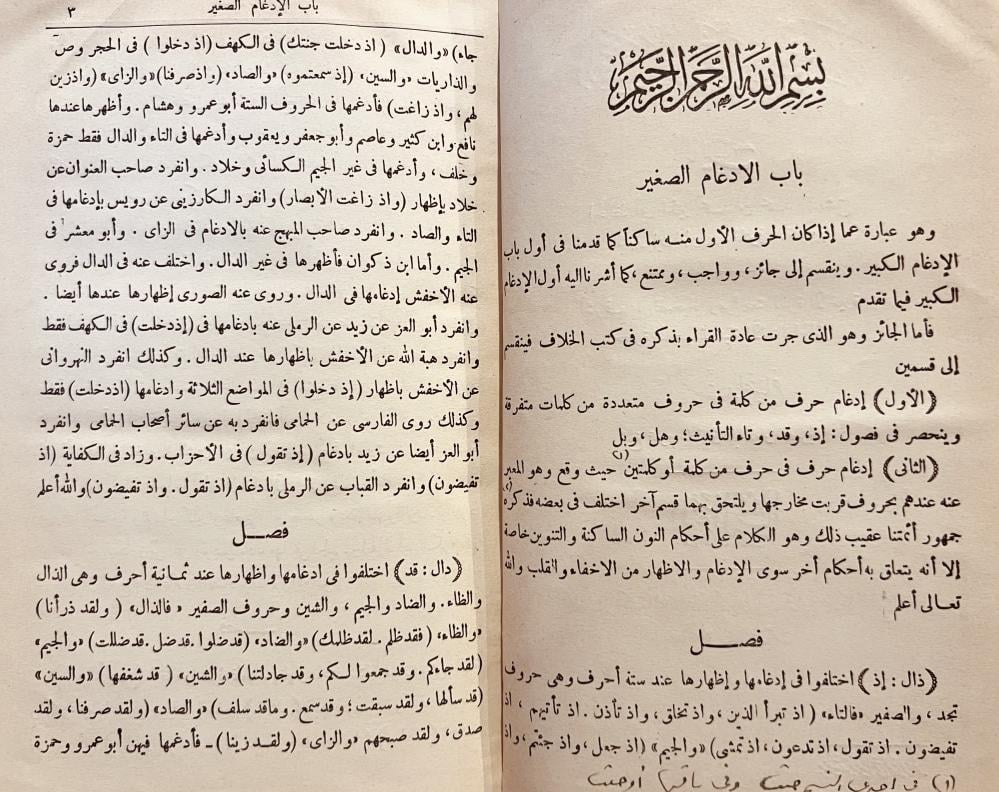 بسم الله الرحمن الرحيم
باب الادغام الصغير
وهو عبارة عما إذا كان الحرف الأول منه ساكناً كما قدمنا فى أول باب
الإدغام الكبير . وينقسم إلى جائز، وواجب ، وممتنع ،كما أشرنا اليه أول الإدغام
الكبير فيما تقدم
فأما الجائز وهو الذى جرت عادة القراء بذكره فى كتب الخلاف فينقسم
إلى قسمين
(الأول) إدغام حرف من كلمة فى حروف متعددة من كلمات متفرقة
وينحصر فى فصول: إذ، وقد، وتاء التأنيث؛ وهل ، وبل
(الثانى) إدغام حرف فى حرف من كلمة أو كلمتين (١) حيث وقع وهو المعبر
عنه عندهم بحروف قربت مخارجها ويلتحق بهما قسم آخر اختلف فى بعضه فذكره
جمهور أئمتنا عقيب ذلك وهو الكلام على أحكام النون الساكنة والتنوين خاصة
إلا أنه يتعلق به أحكام أخر سوى الإدغام والاظهار من الاخفاء والقلب والله
تعالى أعلم
فصــل
(ذال : إذ) اختلفوا فى إدغامها وإظهارها عند ستة أحرف وهى حروف
تجد ، والصفير «فالتاء» ( اذ تبرأ الذين ، واذ تخلق ، واذ تأذن . اذ تأتيهم ، اذ
تفيضون . اذ تقول ، اذ تدعون ، اذ تمشى) «والجيم» (اذ جعل ، واذ جئتم ، واذ
(١) فى احدى النسخ حيث وفى باقيها أو حيث
باب الإدغام الصغير ٣
جاء) «والدال» ( اذ دخلت جنتك) فى الكهف (اذ دخلوا ) فى الحجر وص
والذاريات «والسين» (إذ سمعتموه) «والصاد» (واذ صرفنا) «والزاى» (واذ زين
لهم ، واذ زاغت) فأدغمها فى الحروف الستة أبو عمرو وهشام . وأظهرها عندها
نافع وابن كثير وعاصم وأبو جعفر ويعقوب وأدغمها فى التاء والدال فقط حمزة
وخلف ، وأدغمها فى غير الجيم الكسائى وخلاد . وانفرد صاحب العنوان عن
خلاد بإظهار (واذ زاغت الأبصار) وانفرد الكارزينى عن رويس بإدغامها فى
التاء والصاد . وانفرد صاحب المبهج عنه بالادغام فى الزاى . وأبو معشر فى
الجيم . وأما ابن ذكوان فأظهرها فى غير الدال . واختلف عنه فى الدال فروى
عنه الأخفش إدغامها فى الدال . وروى عنه الصورى إظهارها عندها أيضا .
وانفرد أبو العز عن زيد عن الرملى عنه بادغامها فى (إذ دخلت) فى الكهف فقط
وانفرد هبة الله عن الأخفش باظهارها عند الدال . وكذلك انفرد النهروانى
عن الأخفش باظهار (إذ دخلوا) فى المواضع الثلاثة وادغامها (اذ دخلت) فقط
وكذلك روى الفارسى عن الحمامى فانفرد به عن سائر أصحاب الحمامى وانفرد
أبو العز أيضا عن زيد بادغام ( إذ تقول ) فى الأحزاب . وزاد فى الكفاية (اذ
تفيضون) وانفرد القباب عن الرملى بادغام (اذ تقول . واذ تفيضون) والله أعلم
فصــل
(دال : قد) اختلفوا فى ادغامها واظهارها عند ثمـانية أحرف وهى الذال
والظاء . والضاد والجيم ، والشين وحروف الصفير « فالذال» ( ولقد ذرأنا )
«والظاء» ( فقد ظلم . لقد ظلمك) «والضاد» (قد ضلوا . قد ضل . قد ضللت) «والجيم»
(لقد جاءكم . وقد جمعوا لكم ، وقد جادلتنا ) «والشين» ( قد شغفها ) «والسين»
(قد سألها ، ولقد سبقت ؛ وقد سمع . وما قد سلف) «والصاد» (ولقد صرفنا ، ولقد
صدق ، ولقد صبحهم «والزاى» (ولقـد زينا ) ـ فأدغمها فيهن أبو عمرو وحمزة